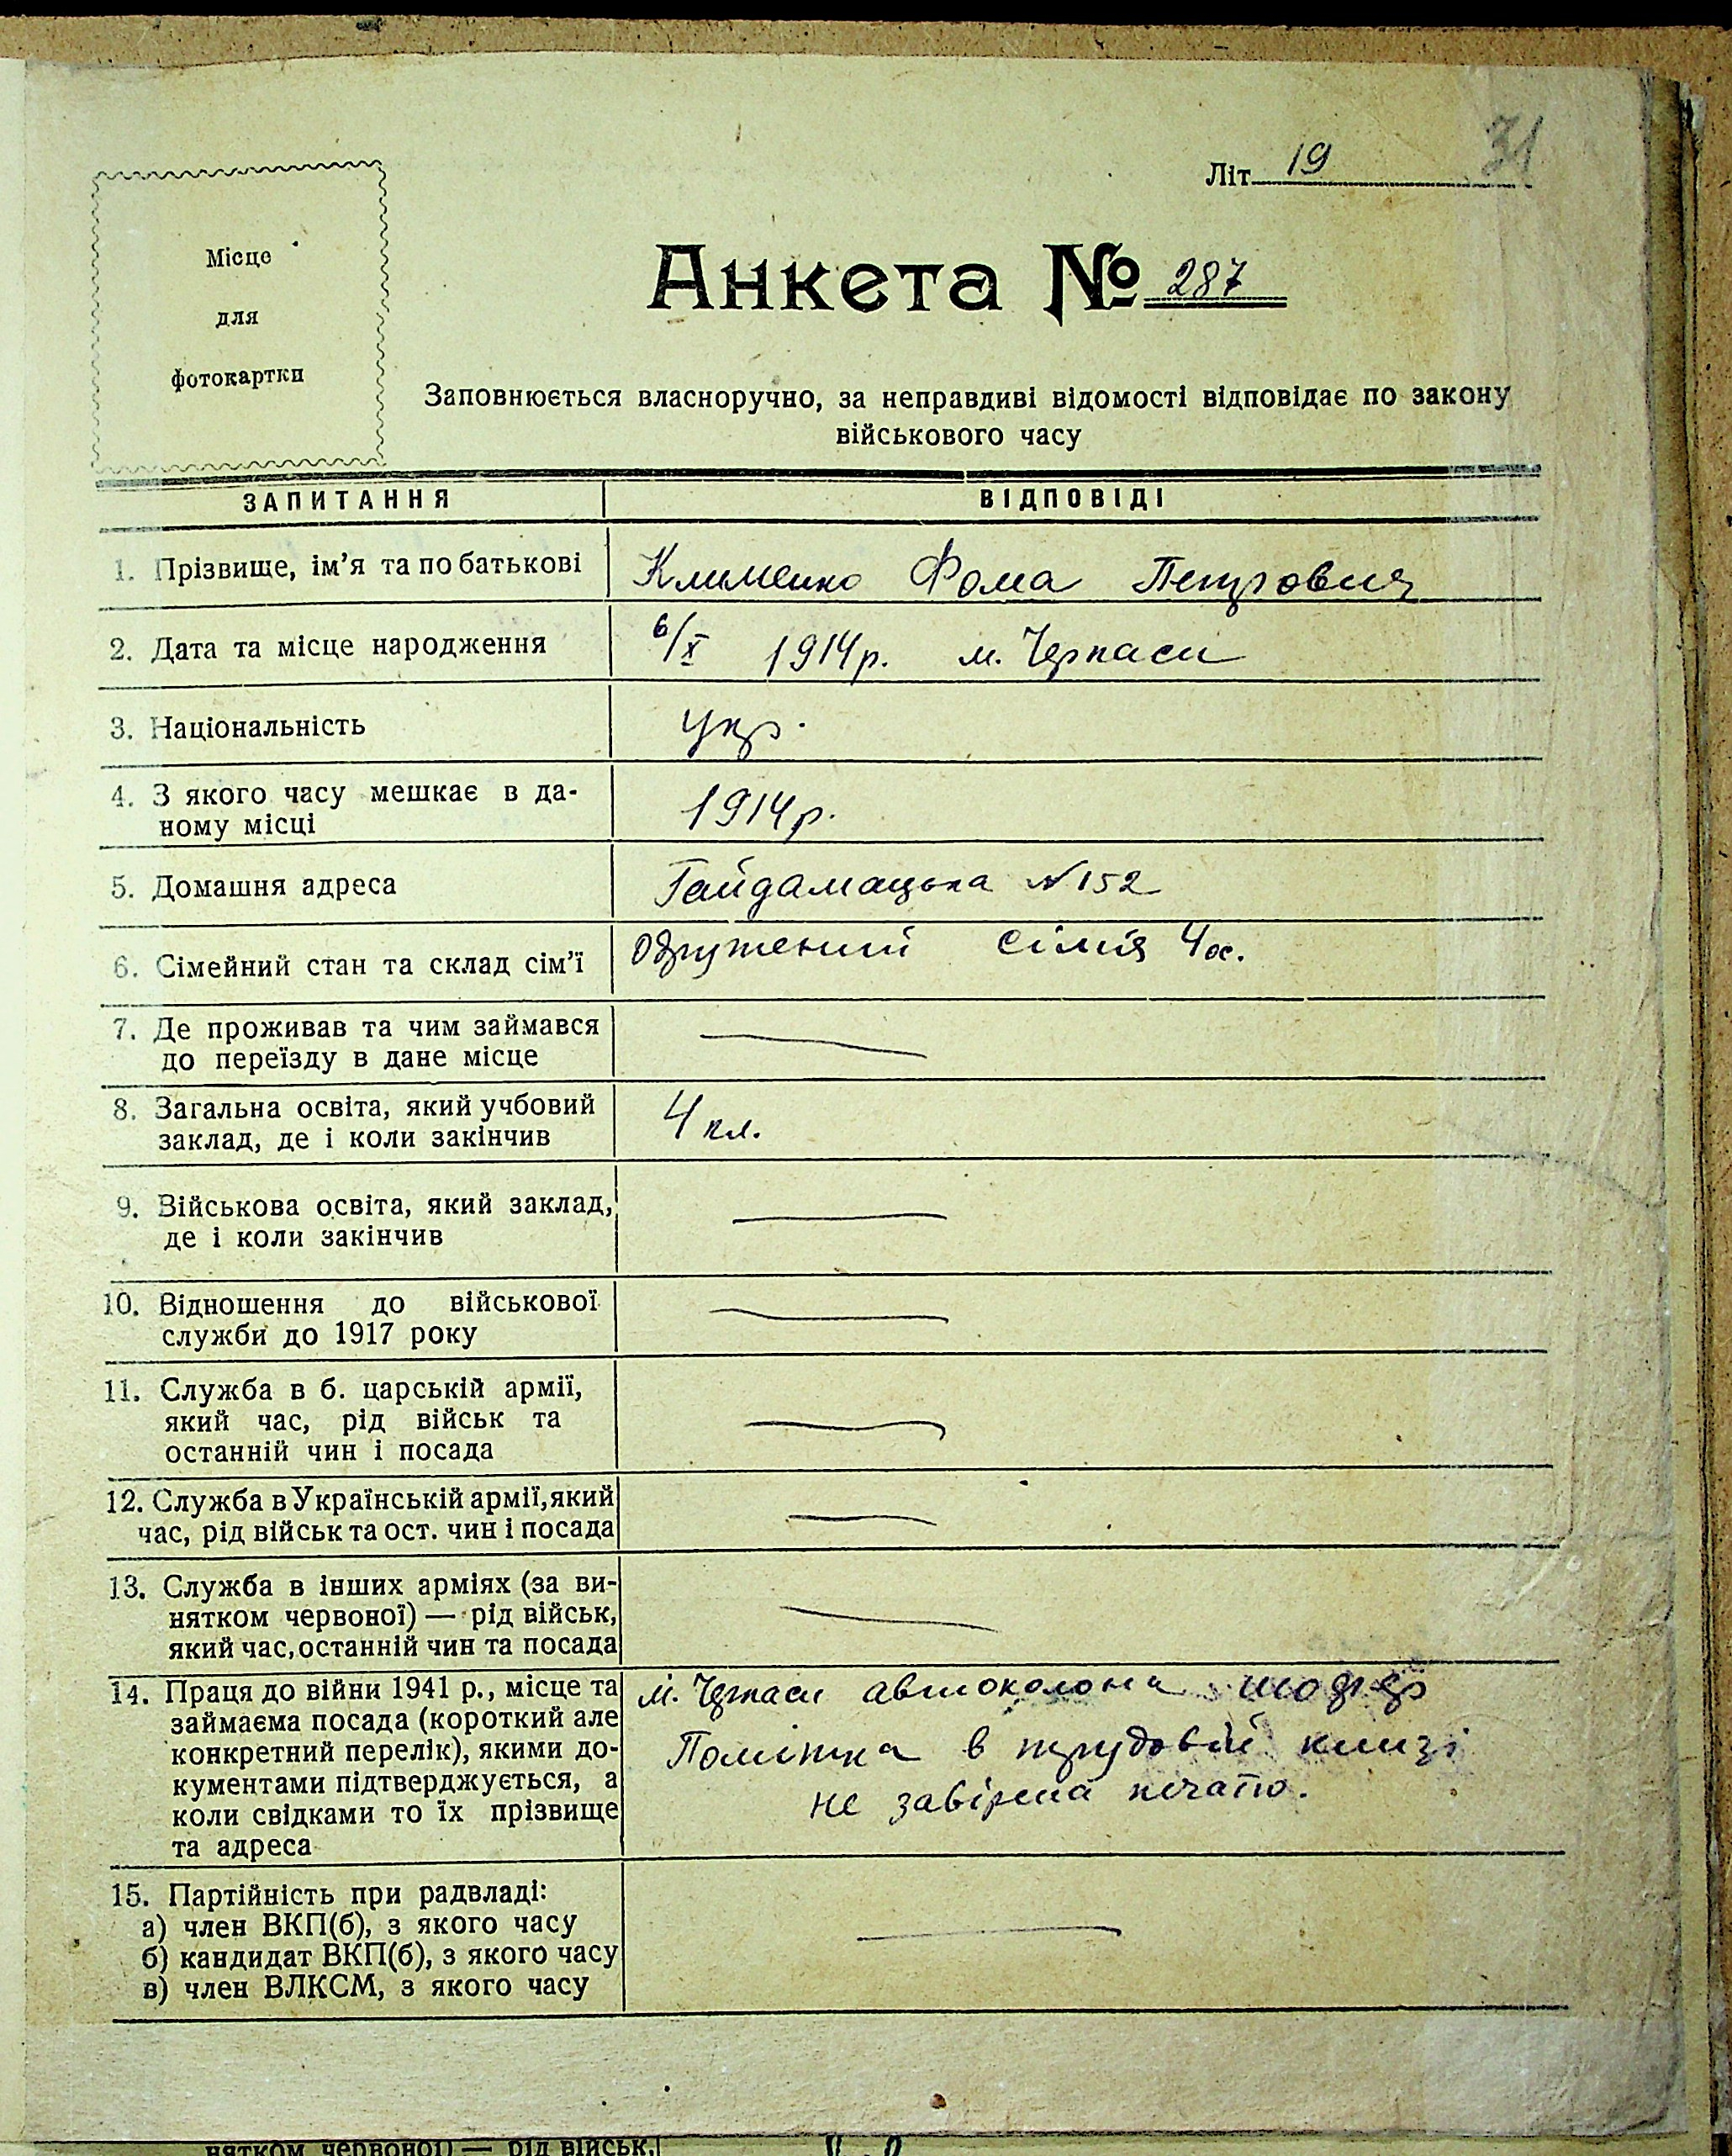 31
Літ 19
Місце
для
фотокартки
Анкета № 287
Заповнюється власноручно, за неправдиві відомості відповідає по закону
військового часу
ЗАПИТАННЯ ВІДПОВІДІ
1. Прізвище, ім'я та по батькові Клименко Фома Петрович
2. Дата та місце народження 6/X 1914р. м. Черкаси
3. Національність укр.
4. З якого часу мешкає в да-
ному місці 1914р.
5. Домашня адреса Гайдамацька №152
6. Сімейний стан та склад сім'ї Одружений сімія 4 ос.
7. Де проживав та чим займався
до переїзду в дане місце —
8. Загальна освіта, який учбовий
заклад, де і коли закінчив 4 кл.
9. Військова освіта, який заклад,
де і коли закінчив —
10. Відношення до військової
служби до 1917 року —
11. Служба в б. царській армії,
який час, рід військ та
останній чин і посада —
12. Служба в Українській армії, який
час, рід військ та ост. чин і посада —
13. Служба в інших арміях (за ви-
нятком червоної) — рід військ,
який час, останній чин та посада —
14. Праця до війни 1941 р., місце та
займаєма посада (короткий але
конкретний перелік), якими до-
кументами підтверджується, а
коли свідками то їх прізвище
та адреса
м. Черкаси автоколона шофер
Помітка в трудовій книзі
не завірена печаттю.
15. Партійність при радвладі:
а) член ВКП(б), з якого часу
б) кандидат ВКП(б), з якого часу
в) член ВЛКСМ, з якого часу —
нятком червоної) — рід військ,